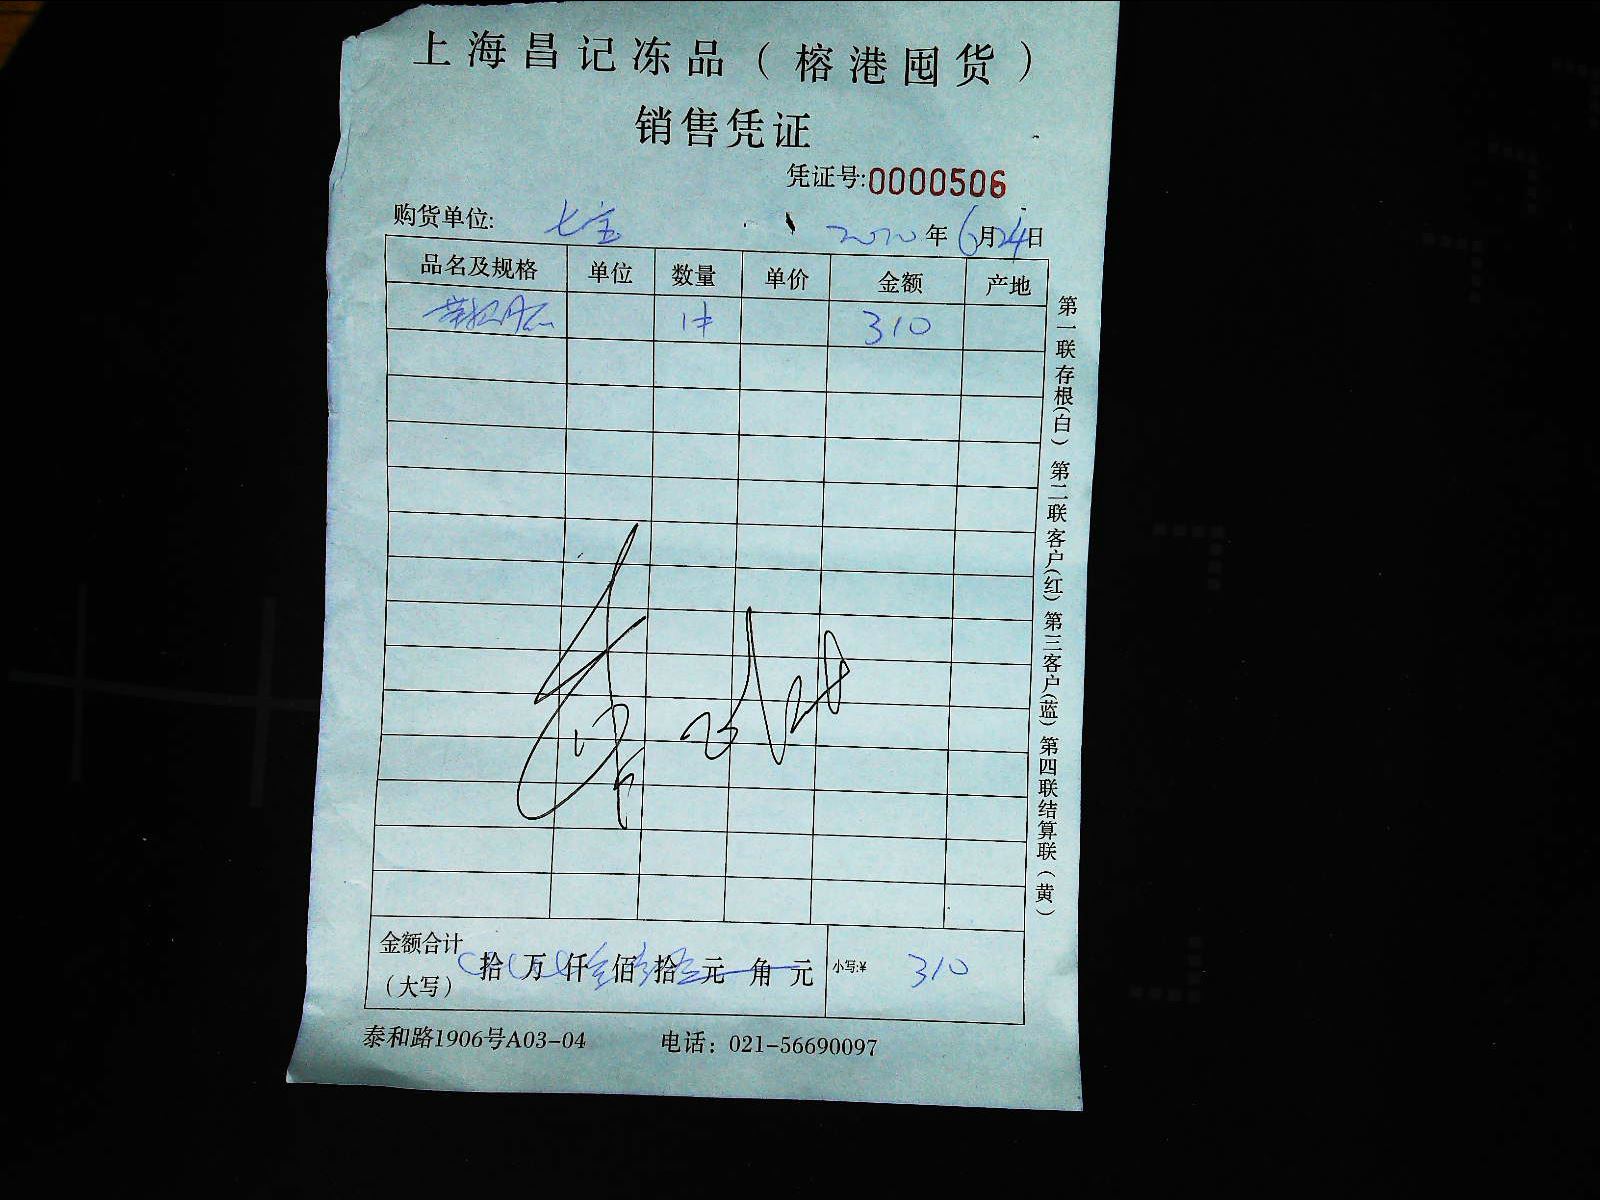 上海昌记冻品（榕港囤货）
销售凭证
凭证号:0000506
购货单位: 七宝 2020年6月24日
品名及规格 单位 数量 单价 金额 产地
1件 310
金额合计 拾 万 仟叁佰 拾 元 角 元 小写:¥ 310
（大写）
泰和路1906号A03-04 电话：021-56690097
第一联存根（白）第二联客户（红）第三客户（蓝）第四联结算联（黄）